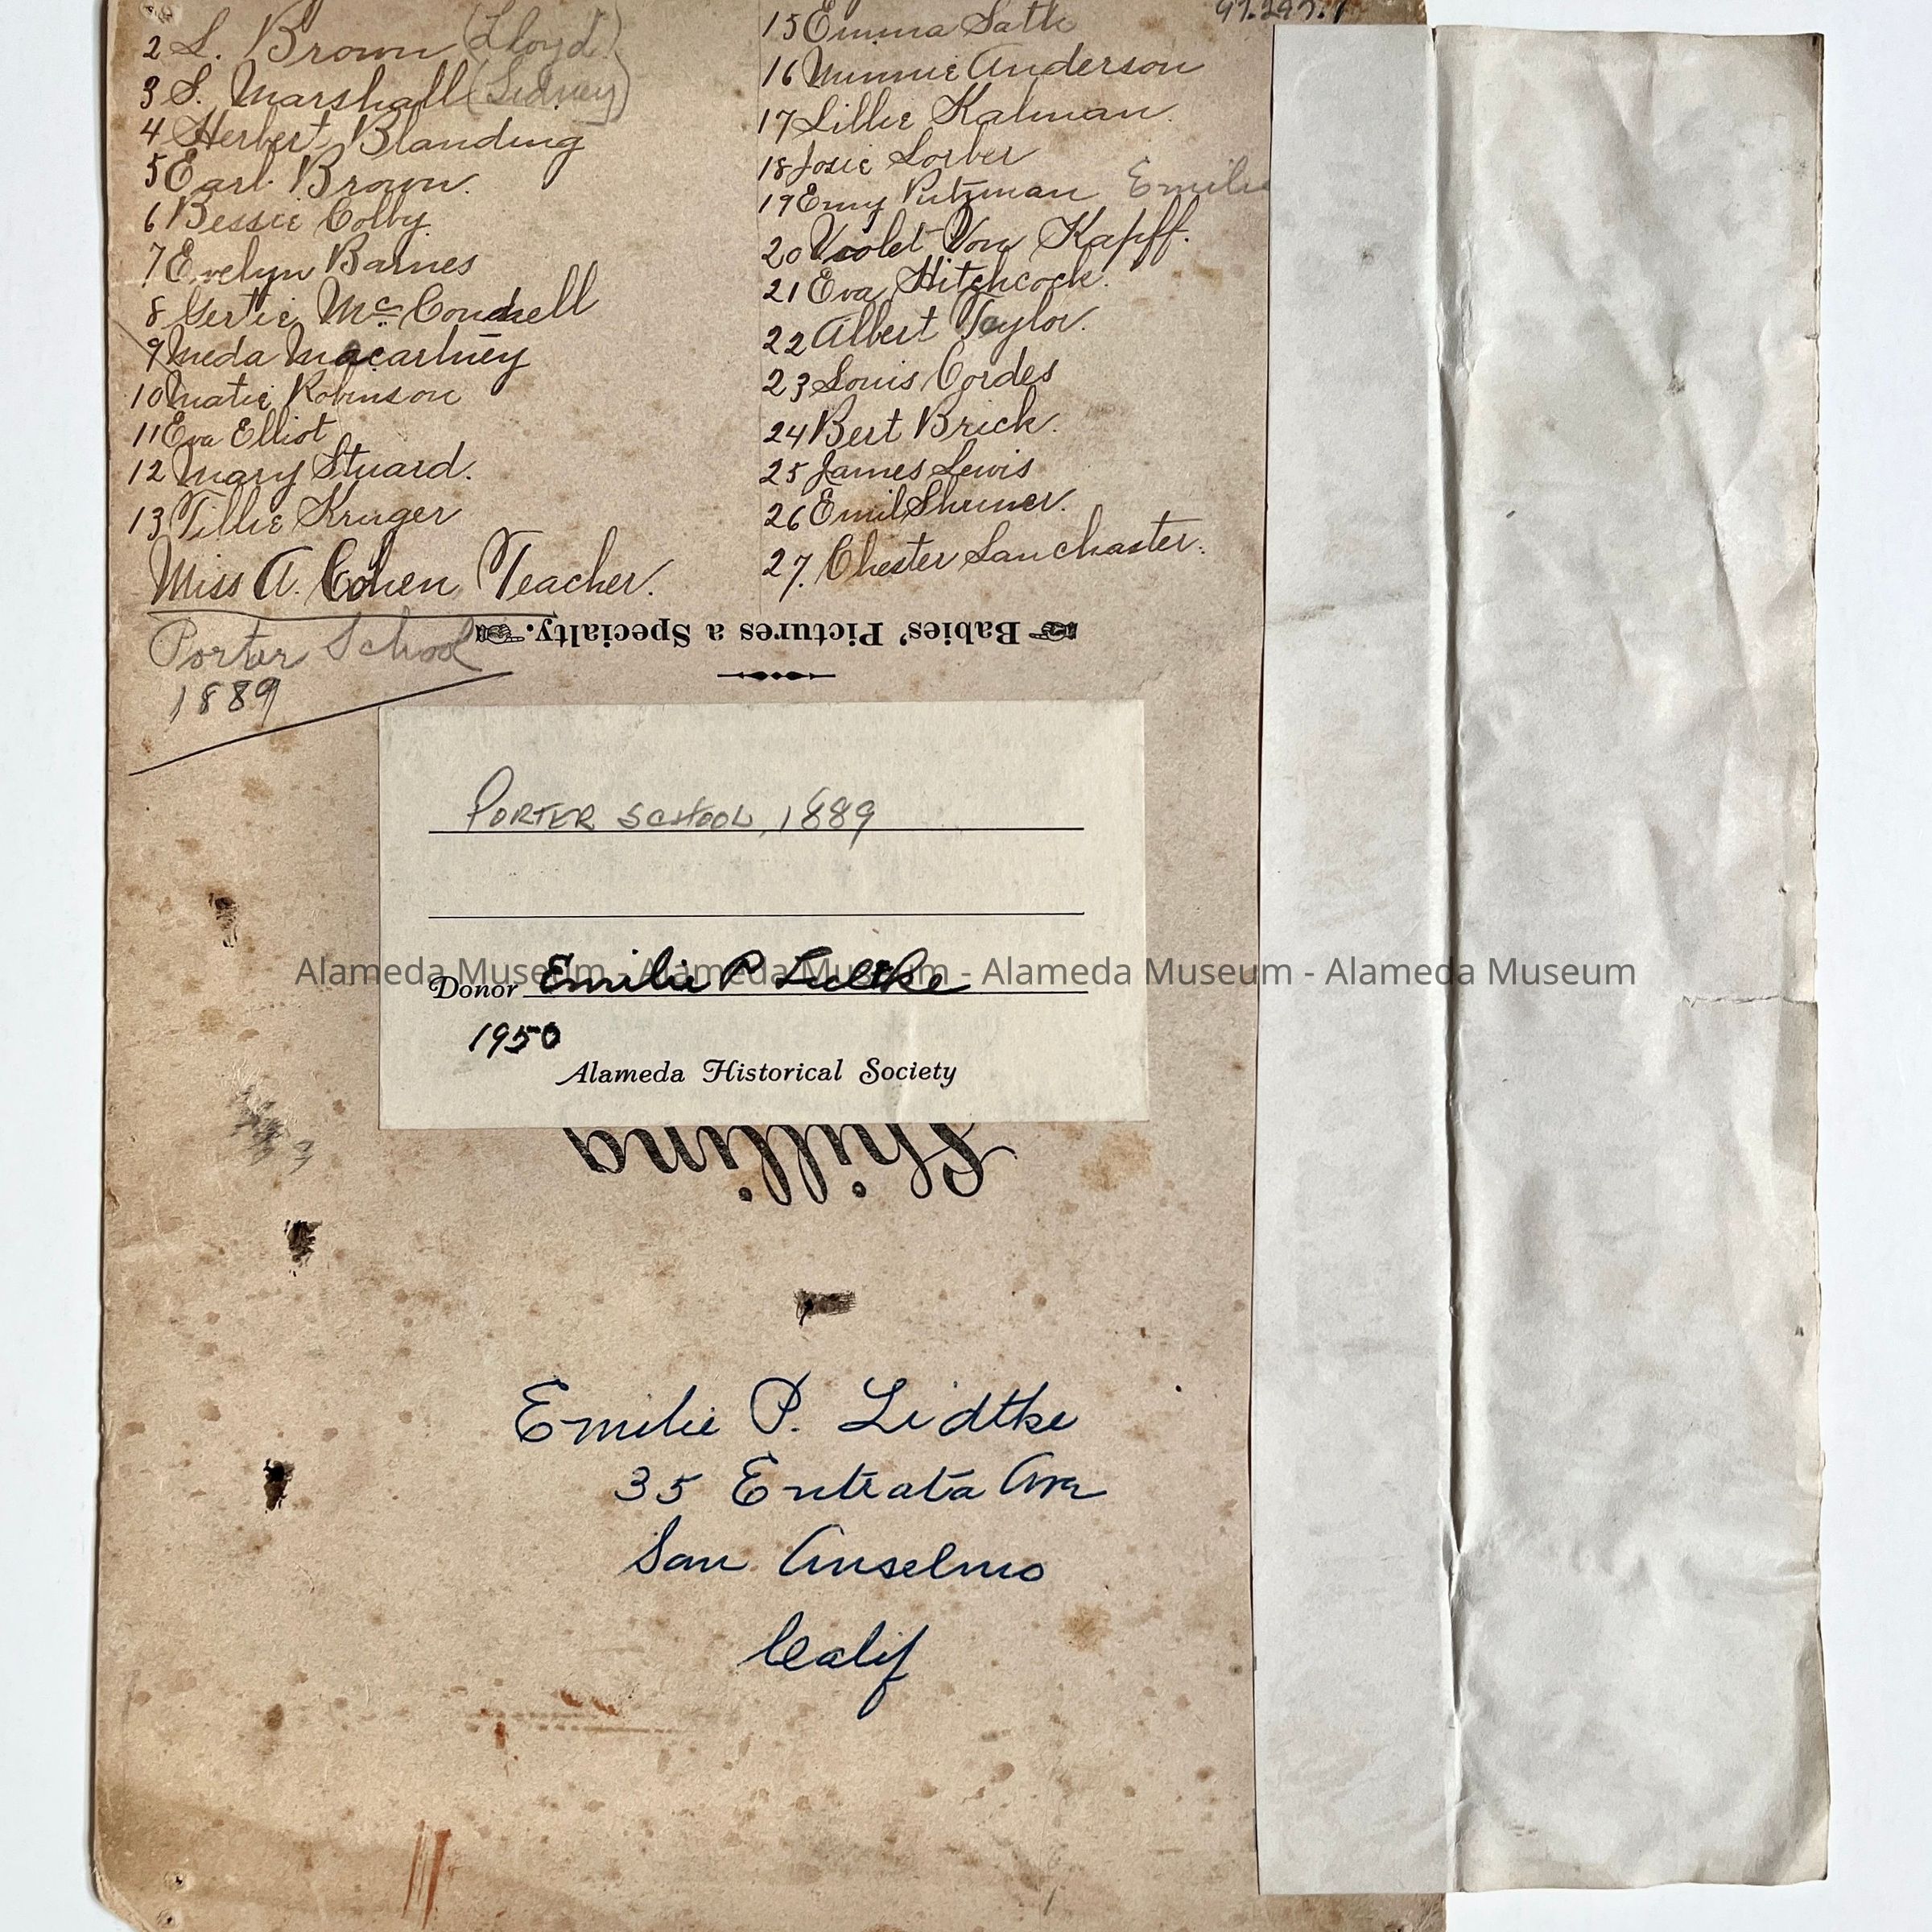 2 L. Brown (Lloyd)
3 S. Marshall (Sidney)
4 Herbert Blanding
5 Earl Brown.
6 Bessie Colby
7 Evelyn Barnes
8 Gertie McConnell
9 Meda Macartney
10 Matie Robinson
11 Eva Elliot
12 Mary Stuard.
13 Tillie Kruger
Miss A. Cohen Teacher.
Porter School
1889
15 Emma Sath
16 Minnie Anderson
17 Lillie Kalman.
18 Josie Lorber
19 Emy Putzman Emilie
20 Violet Von Kapff.
21 Eva Hitchcock.
22 Albert Taylor.
23 Louis Cordes
24 Bert Brick.
25 James Lewis
26 Emil Shriner.
27. Chester Lanchaster.
Babies' Pictures a Specialty.
PORTER SCHOOL, 1889
Donor Emilie P
1950
Alameda Historical Society
Alameda Museum - Alameda Museum - Alameda Museum - Alameda Museum
Shilling
Emilie P. Lidtke
35 Entrata Ave
San Anselmo
Calif